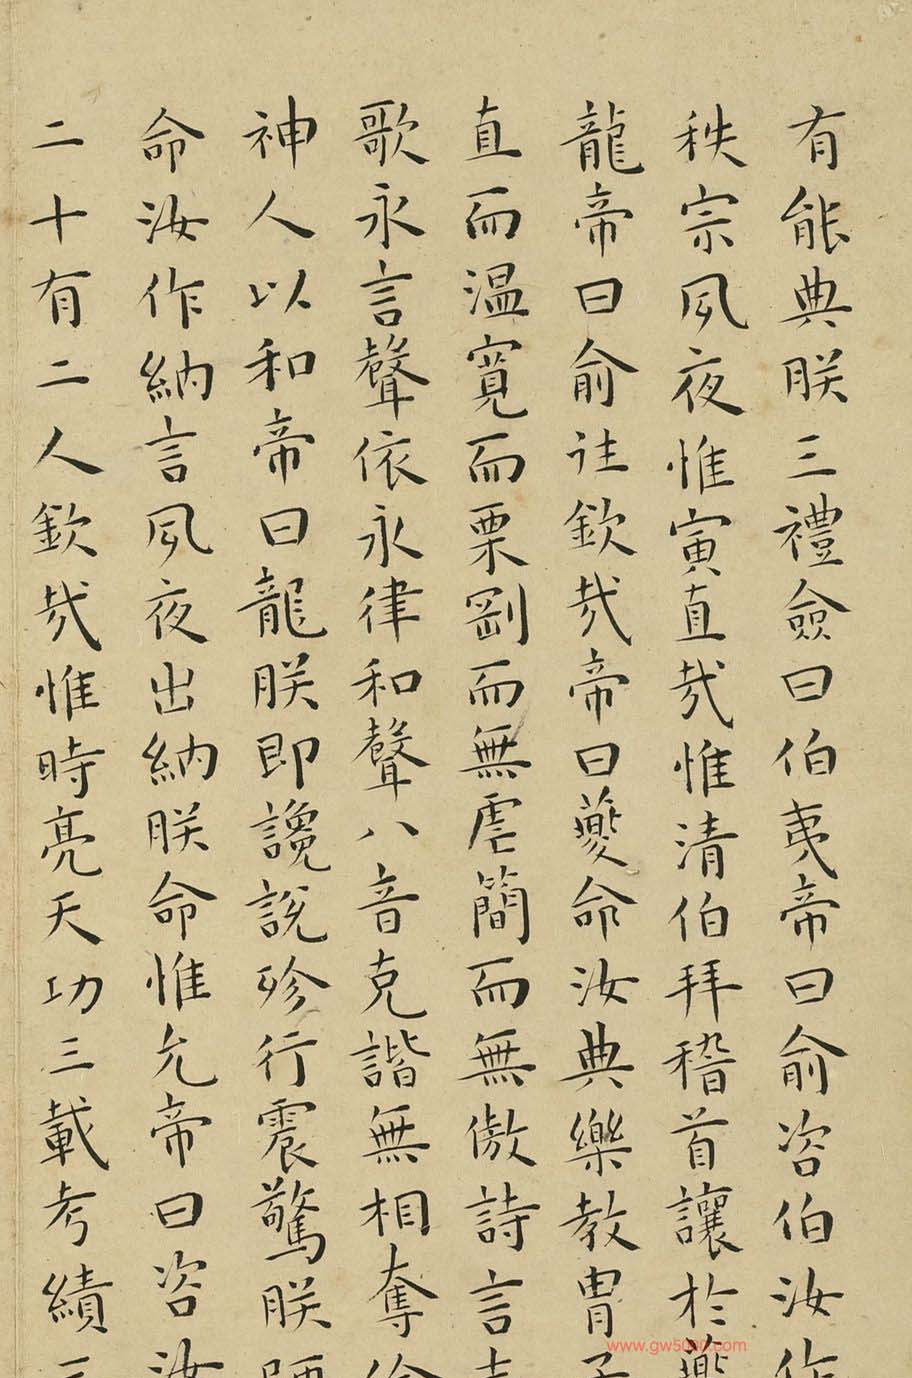 有能典朕三禮僉曰伯夷帝曰俞咨伯汝作
秩宗夙夜惟寅直哉惟清伯拜稽首讓於夔
龍帝曰俞往欽哉帝曰夔命汝典樂教胄子
直而温寬而栗剛而無虐簡而無傲詩言志
歌永言聲依永律和聲八音克諧無相奪倫
神人以和帝曰龍朕即讒說殄行震驚朕師
命汝作納言夙夜出納朕命惟允帝曰咨汝
二十有二人欽哉惟時亮天功三載考績三
www.gw5000.com